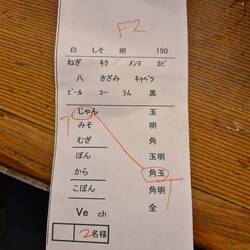 F2
白 しそ 明 150
ねぎ キク メンマ カビ
八 きざみ キャベツ
ビール コー ラム 黒
じゃん 玉
みそ 明
むぎ 角
ぽん 玉明
から 角玉
こぽん 角明
Ve ch 全
2名様